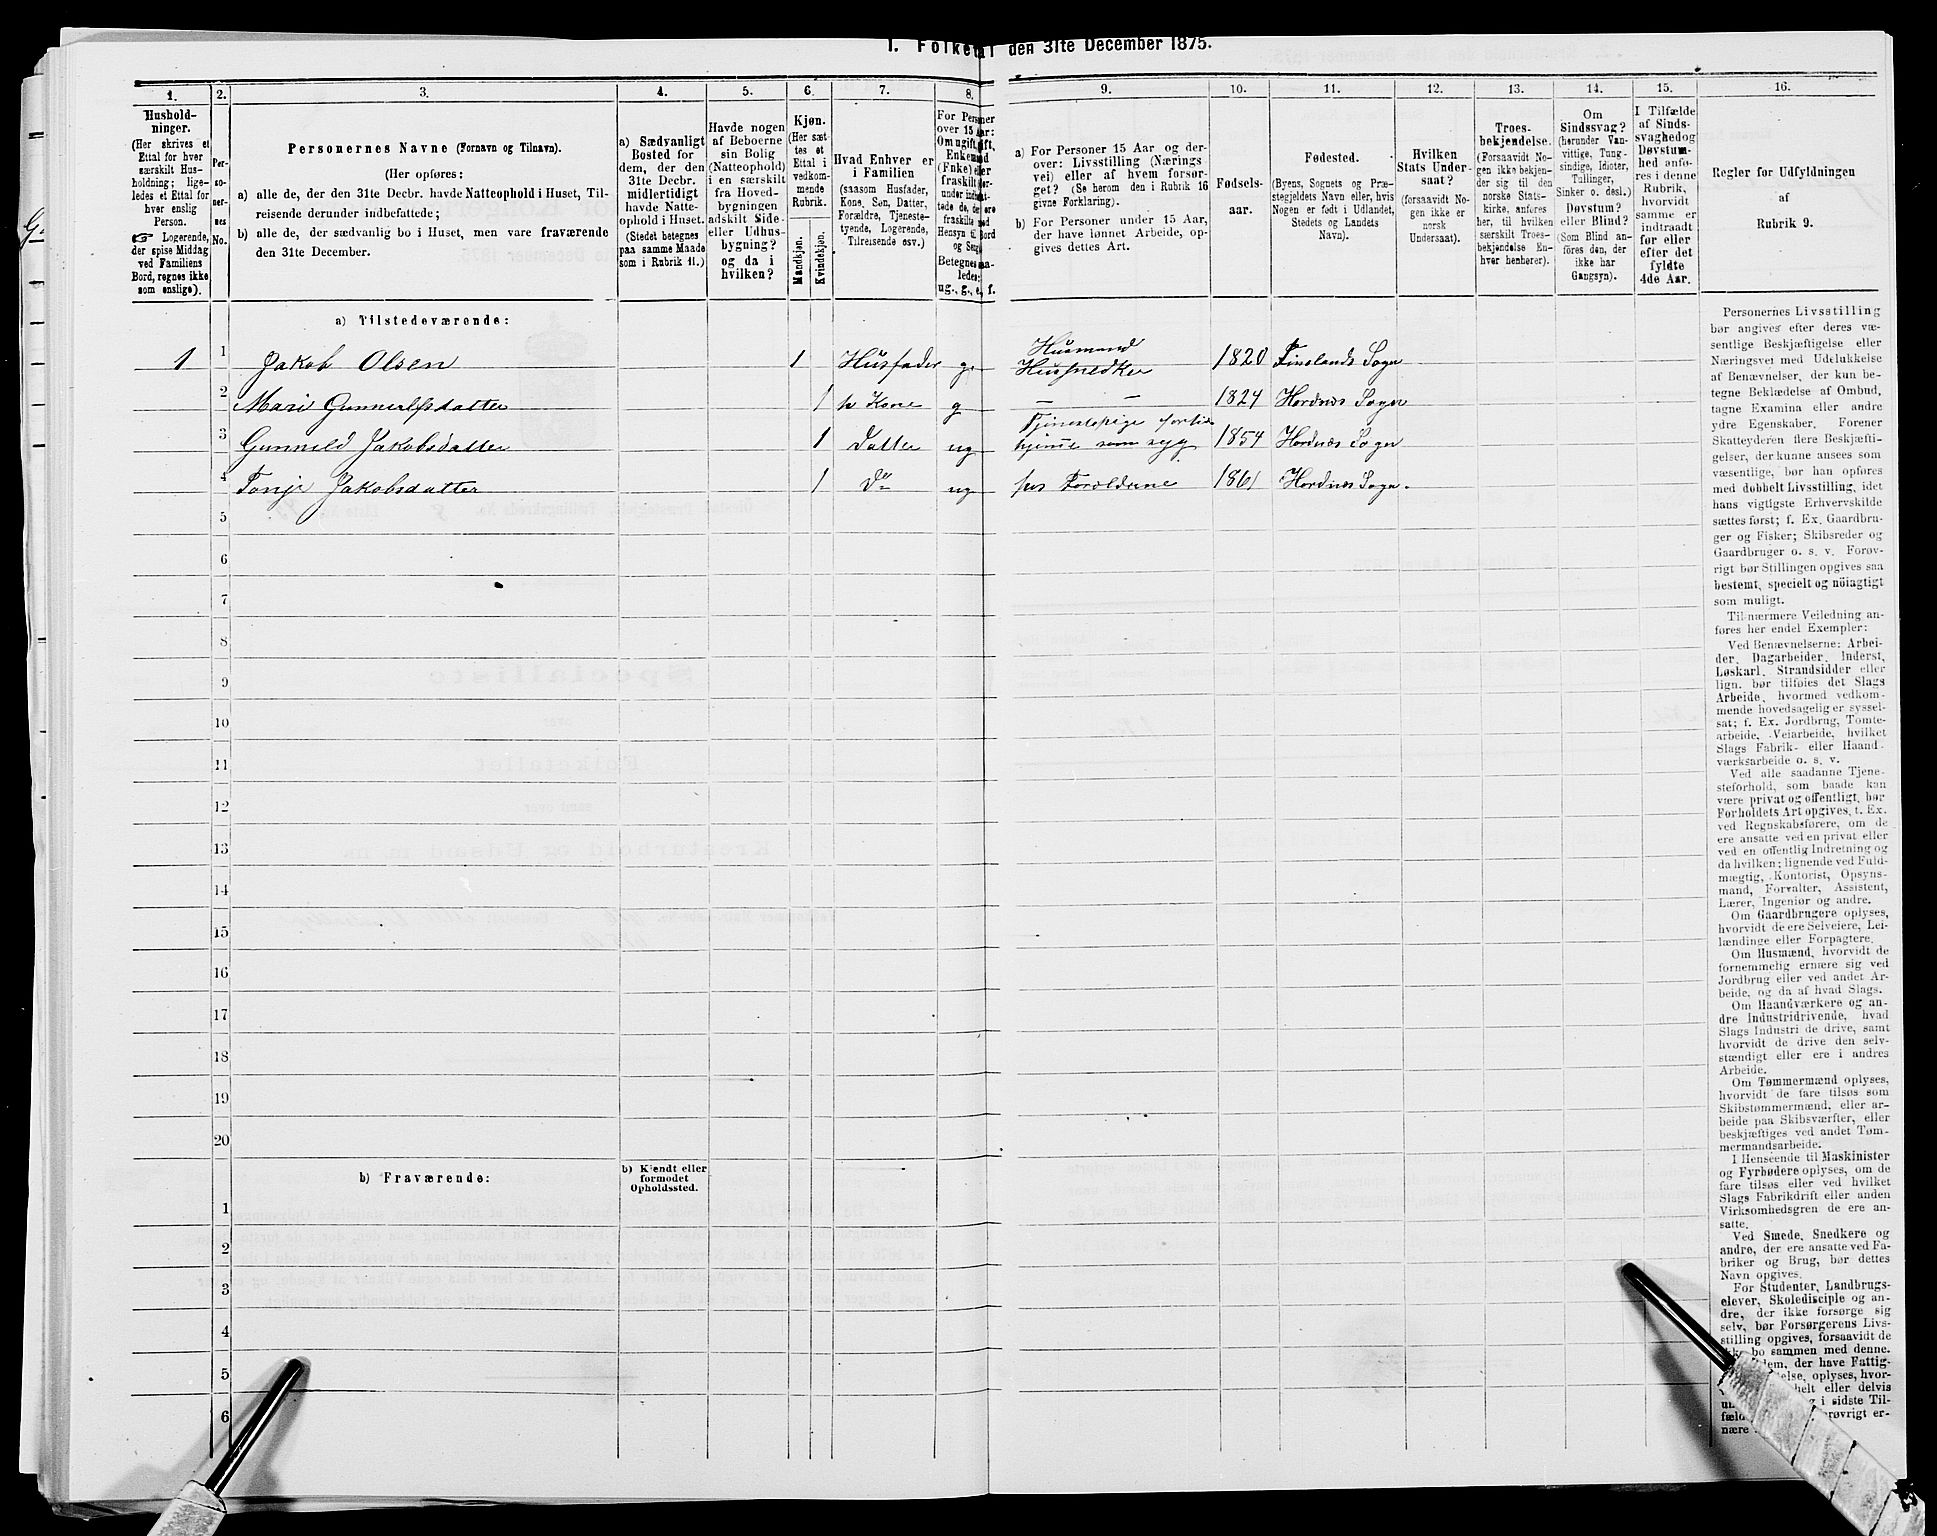 I. Folketal den 31te December 1875.
1. 2. 3. 4. 5. 6. 7. 8. 9. 10. 11. 12. 13. 14. 15. 16.
Hushold-
ninger.
(Her skrives et
Ettal for hver
særskilt Hus-
holdning; lige-
ledes et Ettal for
hver enslig
Person.
☞ Logerende,
der spise Middag
ved Familiens
Bord, regnes ikke
som enslige).
Per-
so-
ner-
nes
No.
Personernes Navne (Fornavn og Tilnavn).
(Her opføres:
a) alle de, der den 31te Decbr. havde Natteophold i Huset, Til-
reisende derunder indbefattede;
b) alle de, der sædvanlig bo i Huset, men vare fraværende
den 31te December.
a) Sædvanligt
Bosted for
dem, der den
31te Decbr.
midlertidigt
havde Natte-
ophold i Huset.
(Stedet betegnes
paa samme Maade
som i Rubrik 11.)
Havde nogen
af Beboerne
sin Bolig
(Natteophold)
i en særskilt
fra Hoved-
bygningen
adskilt Side-
eller Udhus-
bygning?
og da i
hvilken?
Kjøn.
(Her sæt-
tes et
Ettal i
vedkom-
mende
Rubrik.
Mandkjøn.
Kvindekjøn.
Hvad Enhver er
i Familien
(saasom Husfader,
Kone, Søn, Datter,
Forældre, Tjeneste-
tyende, Logerende,
Tilreisende osv.)
For Personer
over 15 Aar:
Om ugift, gift,
Enkemand
(Enke) eller
fraskilt
Betegnes saa-
ledes:
ug., g., e, f.
a) For Personer 15 Aar og der-
over: Livsstilling (Nærings
vei) eller af hvem forsør-
get? (Se herom den i Rubrik 16
givne Forklaring).
b) For Personer under 15 Aar,
der have lønnet Arbeide, op-
gives dettes Art.
Fødsels-
aar.
Fødested.
(Byens, Sognets og Præ-
stegjeldets Navn, eller, hvis
Nogen er født i Udlandet,
Stedets og Landets
Navn).
Hvilken
Stats Under-
saat?
(forsaavidt No-
gen ikke er
norsk
Undersaat).
Troes-
bekjendelse.
(Forsaavidt No-
gen ikke bekjen-
der sig til den
norske Stats-
kirke, anføres
her, til hvilken
særskilt Troes-
bekjendelse En-
hver henhører).
Om
Sindssvag?
(herunder Van-
vittige, Tung-
sindige, Idioter,
Tullinger,
Sinker o. desl.)
Døvstum?
eller Blind?
(Som Blind an-
føres den, der
ikke har
Gangsyn).
I Tilfælde
af Sinds-
svaghed og
Døvstum-
hed anfø-
res i denne
Rubrik,
hvorvidt
samme er
indtraadt
før eller
efter det
fyldte
4de Aar.
Regler for Udfyldningen
af
Rubrik 9.
a) Tilstedeværende:
1 1 Jakob Olsen 1 Husfader g. Husmand Hussnedker 1820 Finslands Sogn
2 Mari Gunnerlfsdatter 1 h Kone g – – 1824 Hordnes Sogn
3 Gunneld Jakobsdatter 1 Datter ug Tjenestepige hjeme som syg 1854 Hordnes Sogn
4 Tonje Jakobsdatter 1 Do ug hos Foreldrene 1861 Hordnes Sogn.
5
6
7
8
9
10
11
12
13
14
15
16
17
18
19
20
b) Fraværende:
b) Kjendt eller
formodet
Opholdssted.
1
2
3
4
5
6
Personernes Livsstilling
bør angives efter deres væ-
sentlige Beskjæftigelse eller
Næringsvei med Udelukkelse
af Benævnelser, der kun be-
tegne Beklædelse af Ombud,
tagne Examina eller andre
ydre Egenskaber. Forener
Skatteyderen flere Beskjæfti-
gelser, der kunne ansees som
væsentlige, bør han opføres
med dobbelt Livsstilling, idet
hans vigtigste Erhvervskilde
sættes først; f. Ex. Gaardbru-
ger og Fisker; Skibsreder og
Gaardbruger o. s. v. Forøv-
rigt bør Stillingen opgives saa
bestemt, specielt og nöiagtigt
som muligt.
Til nærmere Veiledning an-
føres her endel Exempler:
Ved Benævnelserne: Arbei-
der, Dagarbeider, Inderst,
Løskarl, Strandsidder eller
lign. bør tilföies det Slags
Arbeide, hvormed vedkom-
mende hovedsagelig er syssel-
sat; f. Ex. Jordbrug, Tømte-
arbeide, Veiarbeide, hvilket
Slags Fabrik- eller Haand-
værksarbeide o. s. v.
Ved alle saadanne Tjene-
steforhold, som baade kan
være privat og offentligt, bør
Forholdets Art opgives, f. Ex.
ved Regnskabsførere, om de
ere ansatte ved en privat eller
ved en offentlig Indretning og
da hvilken; lignende ved Fuld-
mægtig, Kontorist, Opsyns-
mand, Forvalter, Assistent,
Lærer, Ingeniør og andre.
Om Gaardbrugere oplyses,
hvorvidt de ere Selveiere, Lei-
lændinge eller Forpagtere.
Om Husmænd, hvorvidt de
fornemmelig ernære sig ved
Jordbrug eller ved andet Ar-
beide, og da af hvad Slags.
Om Haandværkere og an-
dre Industridrivende, hvad
Slags Industri de drive, samt
hvorvidt de drive den selv-
stændigt eller ere i andres
Arbeide.
Om Tømmermænd oplyses,
hvorvidt de fare tilsøs som
Skibstømmermænd, eller ar-
beide paa Skibsværfter, eller
beskjæftiges ved andet Tøm-
mermandsarbeide.
I Henseende til Maskinister
og Fyrbødere oplyses, om de
fare tilsøs eller ved hvilket
Slags Fabrikdrift eller anden
Virksomhedsgren de ere an-
satte.
Ved Smede, Snedkere og
andre, der ere ansatte ved Fa-
briker og Brug, bør dettes
Navn opgives.
For Studenter, Landbrugs-
elever, Skoledisciple og an-
dre, der ikke forsørge sig
selv, bør Forsørgerens Livs-
stilling opgives, forsaavidt de
bo sammen med denne.
der have Fattig-
oplyses, hvor-
helt eller delvis
i sidste Til-